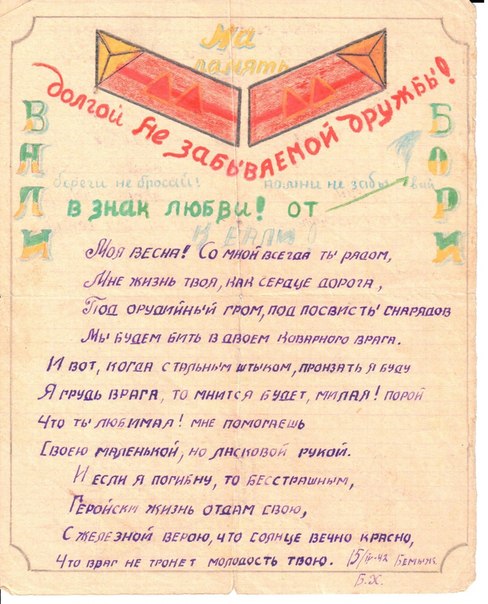 На
память
долгой не забываемой дружбы!
ВАЛИ
БОРИ
береги не бросай!
помни не забывай
в знак любви! от
Моя весна! Со мной всегда ты рядом,
Мне жизнь твоя, как сердце дорога,
Под орудийный гром, под посвисты снарядов
Мы будем бить в двоем коварного врага.
И вот, когда стальным штыком, пронзать я буду
Я грудь врага, то мнится будет, милая! порой
Что ты любимая! мне помогаешь
Своею маленькой, но ласковой рукой.
И если я погибну, то бесстрашным,
Геройски жизнь отдам свою,
С железной верою, что солнце вечно красно,
Что враг не тронет молодость твою. 15/IV-42
В.Х.